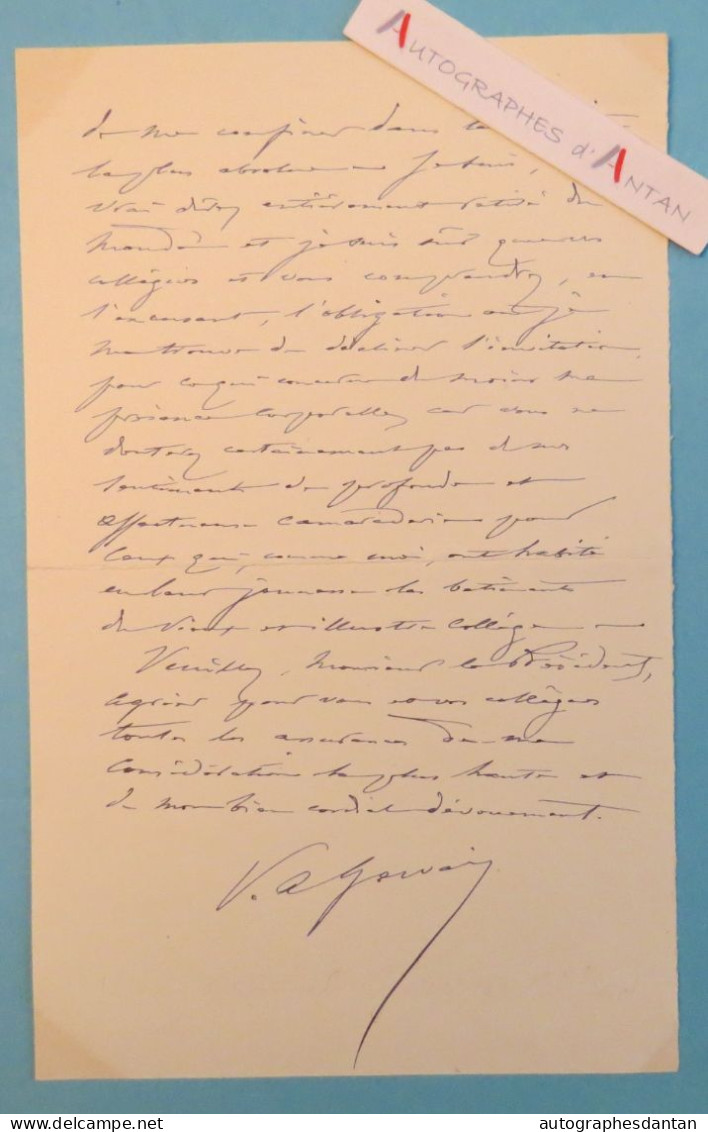 AUTOGRAPHES d'ANTAN
de me confiner dans la
la plus absolue — Je suis,
vrai dire, entièrement retiré du
monde et je suis sûr que mes
collégues et vous comprendrez, en
l'excusant, l'obligation où je
me trouve de décliner l'invitation,
pour ce qui concerne du moins ma
présence corporelle, car vous ne
douterez certainement pas de mes
sentiments de profonde et
affectueuse camaraderie pour
ceux qui, comme moi, ont habité
en leur jeunesse les batiments
du vieux et illustre collége —
Veuillez, Monsieur le Président,
agréer pour vous et vos collégues
toutes les assurances de ma
considération la plus haute et
de mon bien cordial dévouement.
delcampe.net
autographesdantan